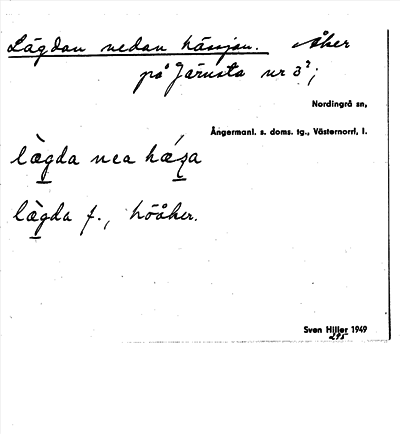 Lägdan nedan hässjan. Åker
på Järnsta nr 3²;
Nordingrå sn,
Ångermanl. s. doms. tg., Västernorrl. l.
lægda nea hæʒa
lægda f., höåker.
Sven Hiller 1949
295